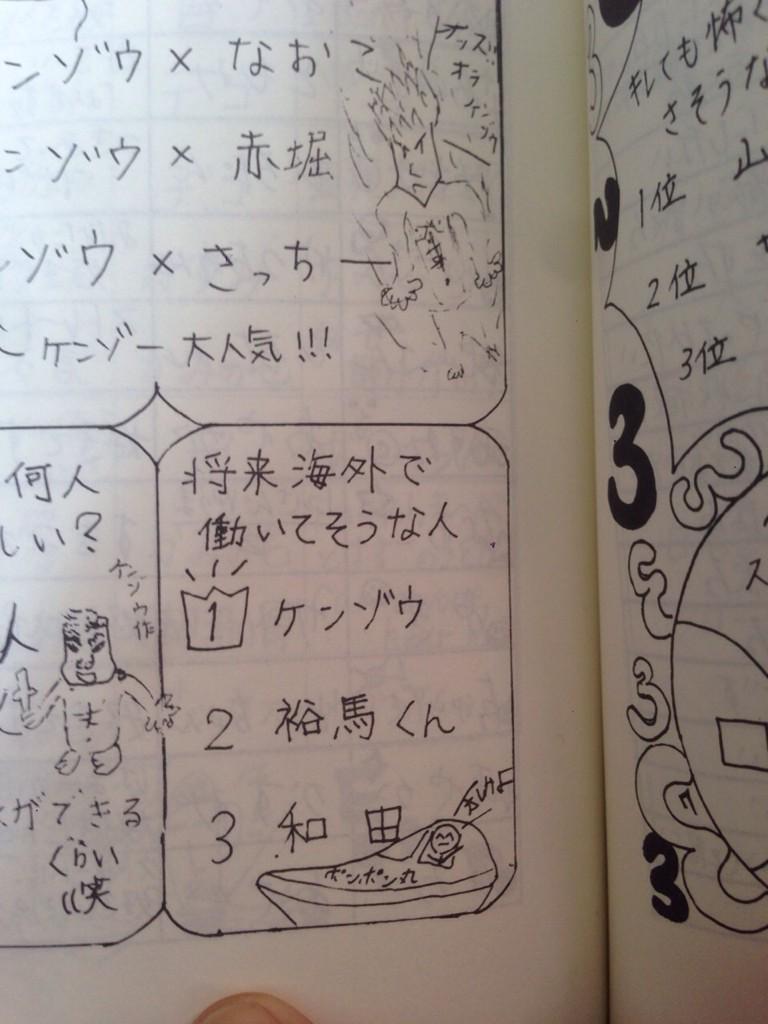 ンゾウ × なおこ
ンゾウ × 赤堀
ゾウ × さっちー
ケンゾー大人気!!!
オラ
ケンゾウ
何人
しい?
人
ケンゾウ作
ができる
くらい
笑
将来海外で
働いてそうな人
1 ケンゾウ
2 裕馬くん
3 和田
ポンポン丸
キレても怖く
さそうな
1位 山
2位
3位
3
3
3